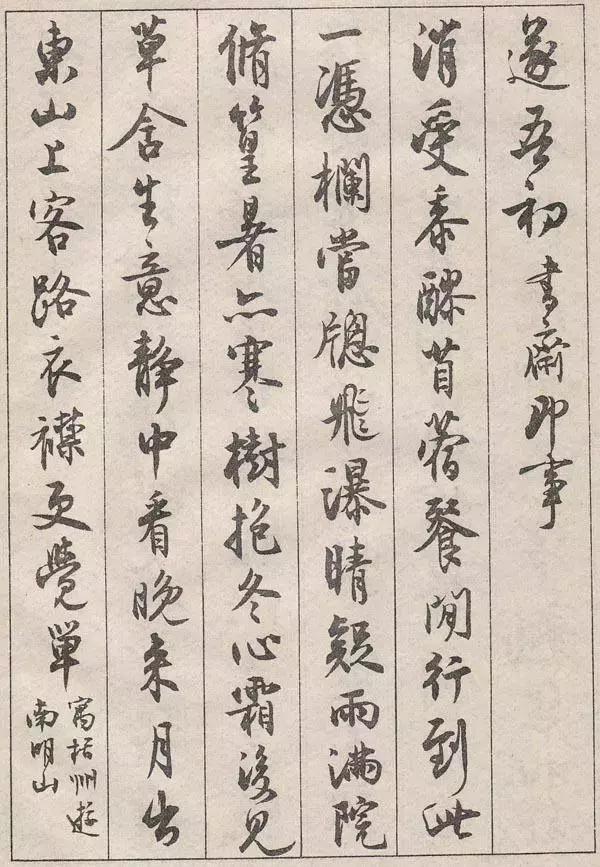 遂吾初書齋即事
消受黍醪苜蓿餐閒行到此
一憑欄當窗飛瀑晴疑雨滿院
脩篁暑亦寒樹抱冬心霜後見
草含生意靜中看晚来月出
東山上客路衣襟更覺單
寓括州遊
南明山